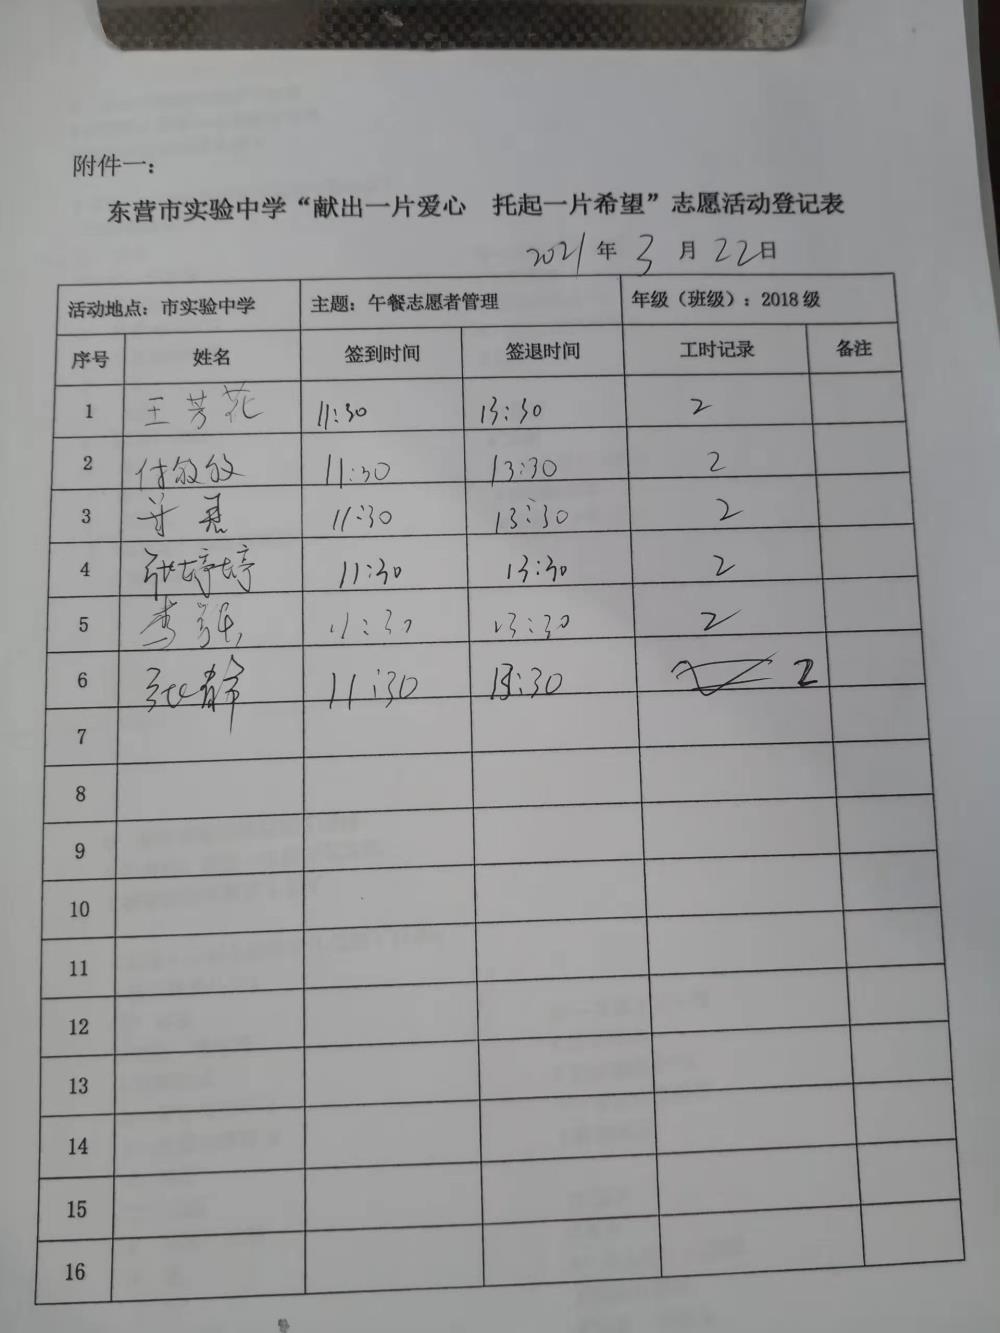 附件一：
东营市实验中学“献出一片爱心　托起一片希望”志愿活动登记表
2021年3月22日
活动地点：市实验中学 主题：午餐志愿者管理 年级（班级）：2018级
序号 姓名 签到时间 签退时间 工时记录 备注
1 王芳花 11:30 13:30 2
2 付敏敏 11:30 13:30 2
3 11:30 13:30 2
4 张婷婷 11:30 13:30 2
5 李 11:30 13:30 2
6 张静 11:30 13:30 2
7
8
9
10
11
12
13
14
15
16